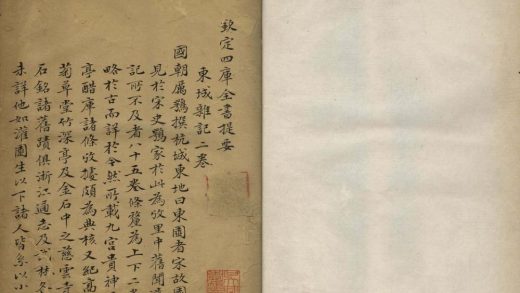 欽定四庫全書提要
東城雜記二卷
國朝厲鶚撰杭城東地曰東園者宋故園
見於宋史鶚家於此為攷里中舊聞
記所不及者八十五卷條釐為上下二
略於古而詳於今然所載九宮貴神
亭醋庫諸條攷據頗為典核又紀高
菊草堂竹深亭及金石中之慈雲寺
石銘諸舊蹟俱浙江通志及武林各
未詳他如灌園生以下諸人皆系以小